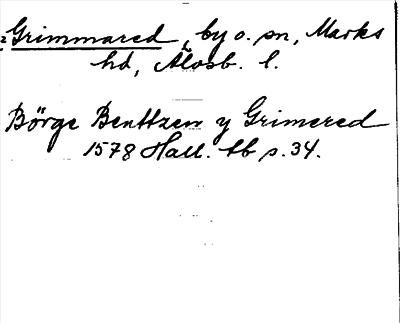 Grimmared, by o. sn, Marks
hd, Älvsb. l.
Börge Benttzen y Grimered
1578 Hall. tb s. 34.